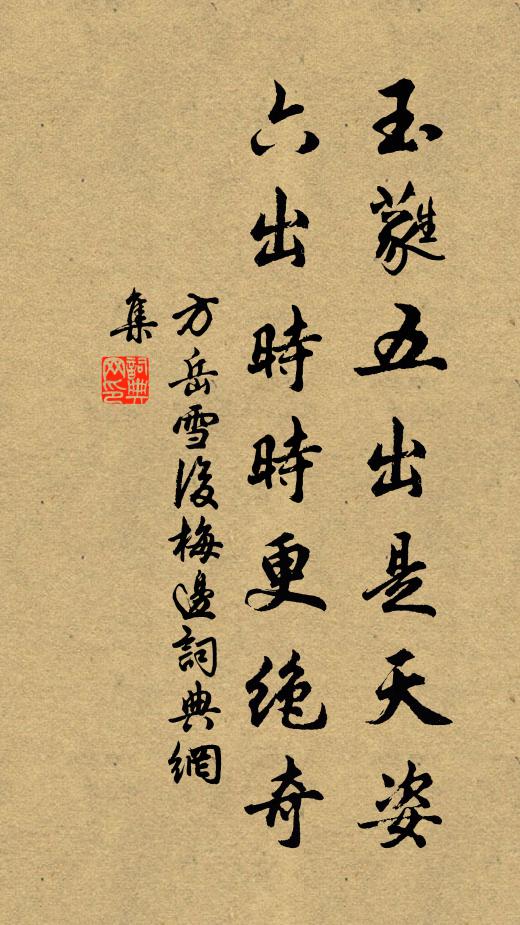 玉蕤五出是天姿
六出時時更绝奇
方岳雪後梅邊詞典網
集
詞典網印